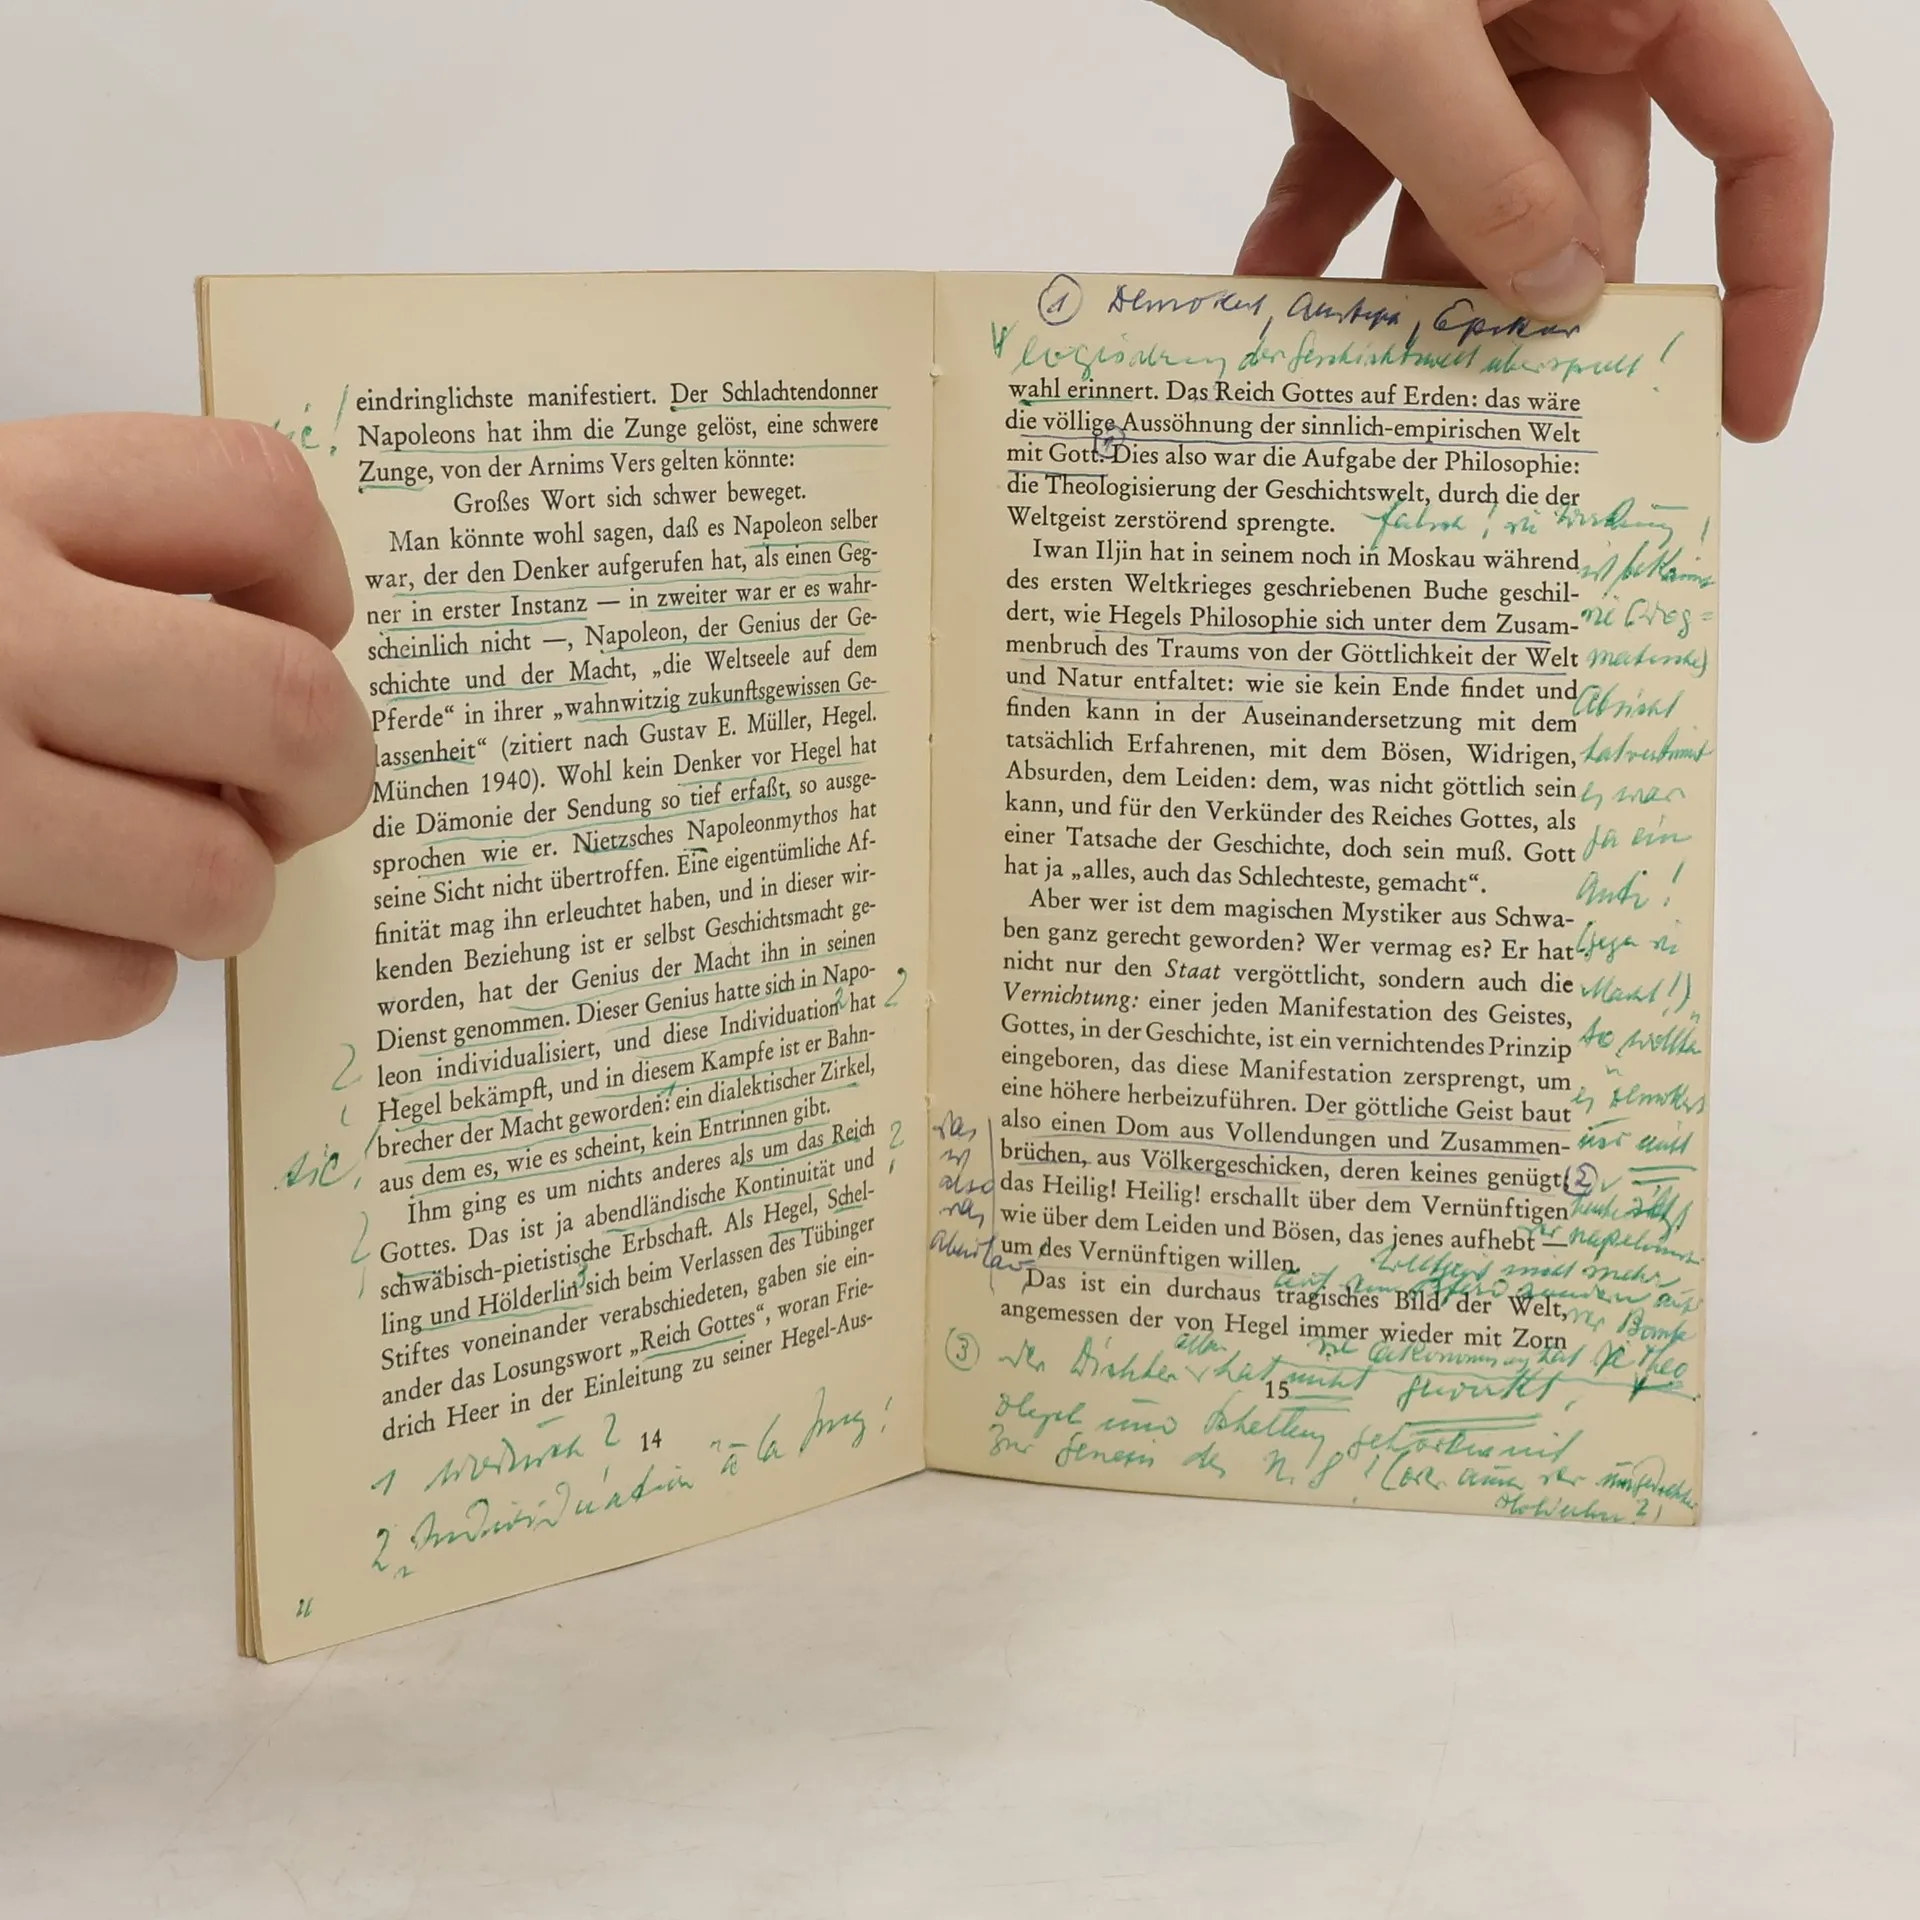 sic!
eindringlichste manifestiert. Der Schlachtendonner
Napoleons hat ihm die Zunge gelöst, eine schwere
Zunge, von der Arnims Vers gelten könnte:
Großes Wort sich schwer beweget.
Man könnte wohl sagen, daß es Napoleon selber
war, der den Denker aufgerufen hat, als einen Geg-
ner in erster Instanz — in zweiter war er es wahr-
scheinlich nicht —, Napoleon, der Genius der Ge-
schichte und der Macht, „die Weltseele auf dem
Pferde“ in ihrer „wahnwitzig zukunftsgewissen Ge-
lassenheit“ (zitiert nach Gustav E. Müller, Hegel.
München 1940). Wohl kein Denker vor Hegel hat
die Dämonie der Sendung so tief erfaßt, so ausge-
sprochen wie er. Nietzsches Napoleonmythos hat
seine Sicht nicht übertroffen. Eine eigentümliche Af-
finität mag ihn erleuchtet haben, und in dieser wir-
kenden Beziehung ist er selbst Geschichtsmacht ge-
worden, hat der Genius der Macht ihn in seinen
Dienst genommen. Dieser Genius hatte sich in Napo-
leon individualisiert, und diese Individuation hat
Hegel bekämpft, und in diesem Kampfe ist er Bahn-
brecher der Macht geworden: ein dialektischer Zirkel,
aus dem es, wie es scheint, kein Entrinnen gibt.
sic!
Ihm ging es um nichts anderes als um das Reich
Gottes. Das ist ja abendländische Kontinuität und
schwäbisch-pietistische Erbschaft. Als Hegel, Schel-
ling und Hölderlin sich beim Verlassen des Tübinger
Stiftes voneinander verabschiedeten, gaben sie ein-
ander das Losungswort „Reich Gottes“, woran Frie-
drich Heer in der Einleitung zu seiner Hegel-Aus-
14
1 wodurch?
2 Individuation à la Jung!
1 Demokrit, Epikur
der Geschichtswelt überspielt!
wahl erinnert. Das Reich Gottes auf Erden: das wäre
die völlige Aussöhnung der sinnlich-empirischen Welt
mit Gott. Dies also war die Aufgabe der Philosophie:
die Theologisierung der Geschichtswelt, durch die der
Weltgeist zerstörend sprengte.
falsch! die
Iwan Iljin hat in seinem noch in Moskau während
des ersten Weltkrieges geschriebenen Buche geschil-
dert, wie Hegels Philosophie sich unter dem Zusam-
menbruch des Traums von der Göttlichkeit der Welt
und Natur entfaltet: wie sie kein Ende findet und
finden kann in der Auseinandersetzung mit dem
tatsächlich Erfahrenen, mit dem Bösen, Widrigen,
Absurden, dem Leiden: dem, was nicht göttlich sein
kann, und für den Verkünder des Reiches Gottes, als
einer Tatsache der Geschichte, doch sein muß. Gott
hat ja „alles, auch das Schlechteste, gemacht“.
Absicht
es war
ja ein
Anti!
Aber wer ist dem magischen Mystiker aus Schwa-
ben ganz gerecht geworden? Wer vermag es? Er hat
nicht nur den Staat vergöttlicht, sondern auch die
Vernichtung: einer jeden Manifestation des Geistes,
Gottes, in der Geschichte, ist ein vernichtendes Prinzip
eingeboren, das diese Manifestation zersprengt, um
eine höhere herbeizuführen. Der göttliche Geist baut
also einen Dom aus Vollendungen und Zusammen-
brüchen, aus Völkergeschicken, deren keines genügt;
das Heilig! Heilig! erschallt über dem Vernünftigen
wie über dem Leiden und Bösen, das jenes aufhebt —
um des Vernünftigen willen.
(gegen die
Macht!)
das
ist
also
das
Das ist ein durchaus tragisches Bild der Welt,
angemessen der von Hegel immer wieder mit Zorn
15
3 der Dichter hat nicht gewirkt!
Hegel und Schelling gehören mit
zur Genesis des N. S!